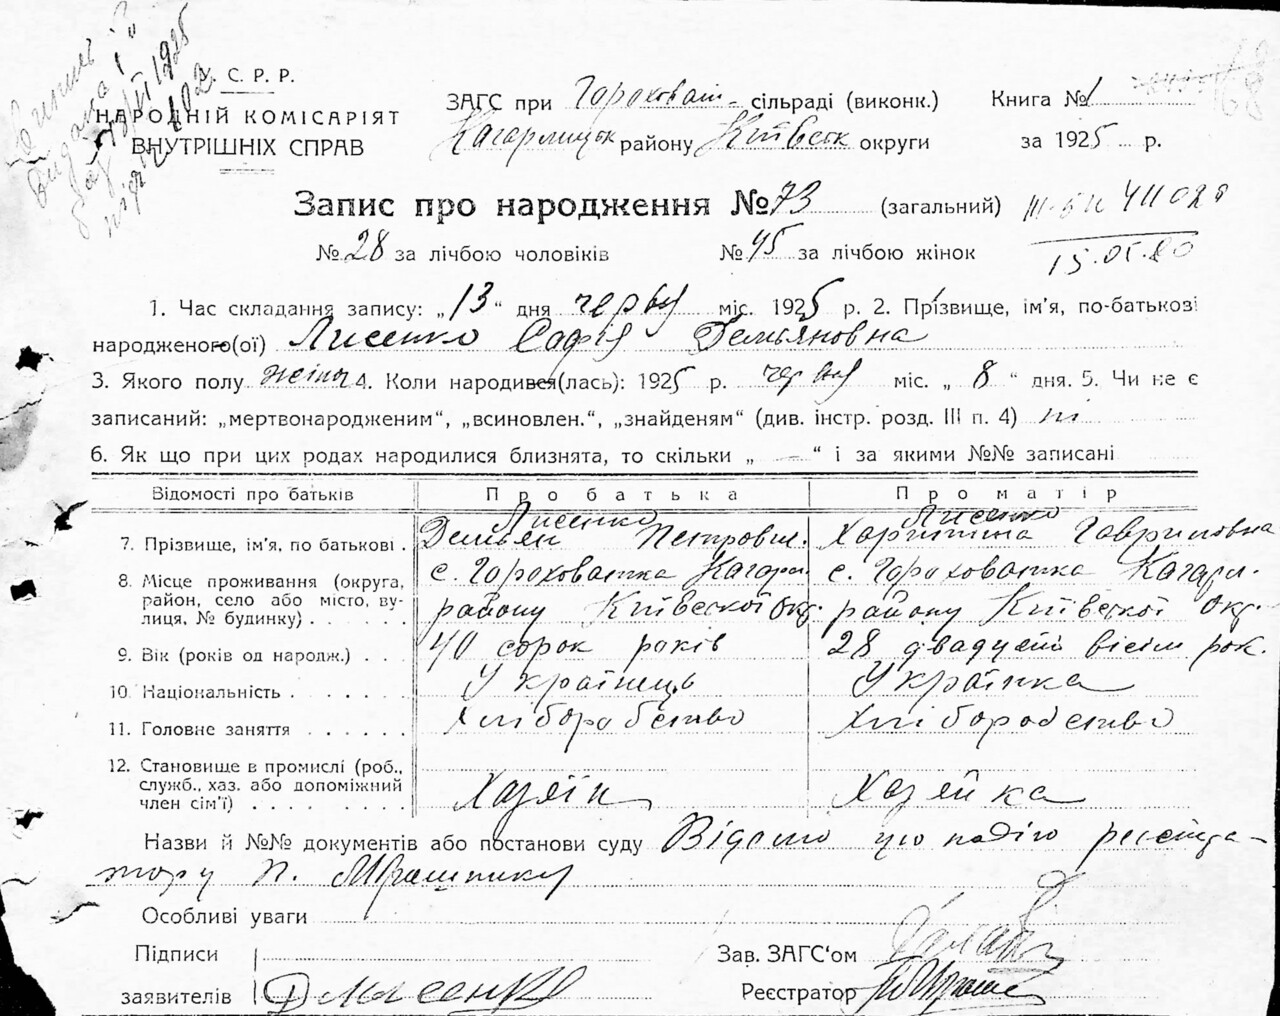 У. С. Р. Р.
НАРОДНІЙ КОМІСАРІЯТ
ВНУТРІШНІХ СПРАВ
ЗАГС при Гороховат- сільраді (виконк.)
Кагарлицьк району Київськ округи
Книга № 1
за 1925 р.
Запис про народження № 73 (загальний)
15.05.80
№ 28 за лічбою чоловіків № 45 за лічбою жінок
1. Час складання запису: „13“ дня червня міс. 1925 р. 2. Прізвище, ім’я, по-батькові
народженого(ої) Лисенко Софія Демьяновна
3. Якого полу жіноч 4. Коли народився(лась): 1925 р. червня міс. „8“ дня. 5. Чи не є
записаний: „мертвонародженим“, „всиновлен.“, „знайденям“ (див. інстр. розд. III п. 4) ні
6. Як що при цих родах народилися близнята, то скільки „ — “ і за якими №№ записані
Відомості про батьків Про батька Про матір
Лисенко Лисенко
7. Прізвище, ім’я, по батькові . Демьян Петрович. Харитина Гавриловна
8. Місце проживання (округа, с. Гороховатка Кагарл. с. Гороховатка Кагарл.
район, село або місто, ву- району Київської Окр. району Київської Окр.
лиця, № будинку) . . . . . .
9. Вік (років од народж.) . . . 40 сорок років 28 двадцать вісім рок.
10. Національність . . . . . . Українець Українка
11. Головне заняття . . . . . . Хліборобство Хліборобство
12. Становище в промислі (роб.,
служб., хаз. або допоміжний
член сім’ї) . . . . . . . . Хазяїн Хазяйка
Назви й №№ документів або постанови суду Відомо цю подію реєстра-
тору П.
Особливі уваги
Підписи
заявителів Д Лисенко
Зав. ЗАГС‘ом
Реєстратор